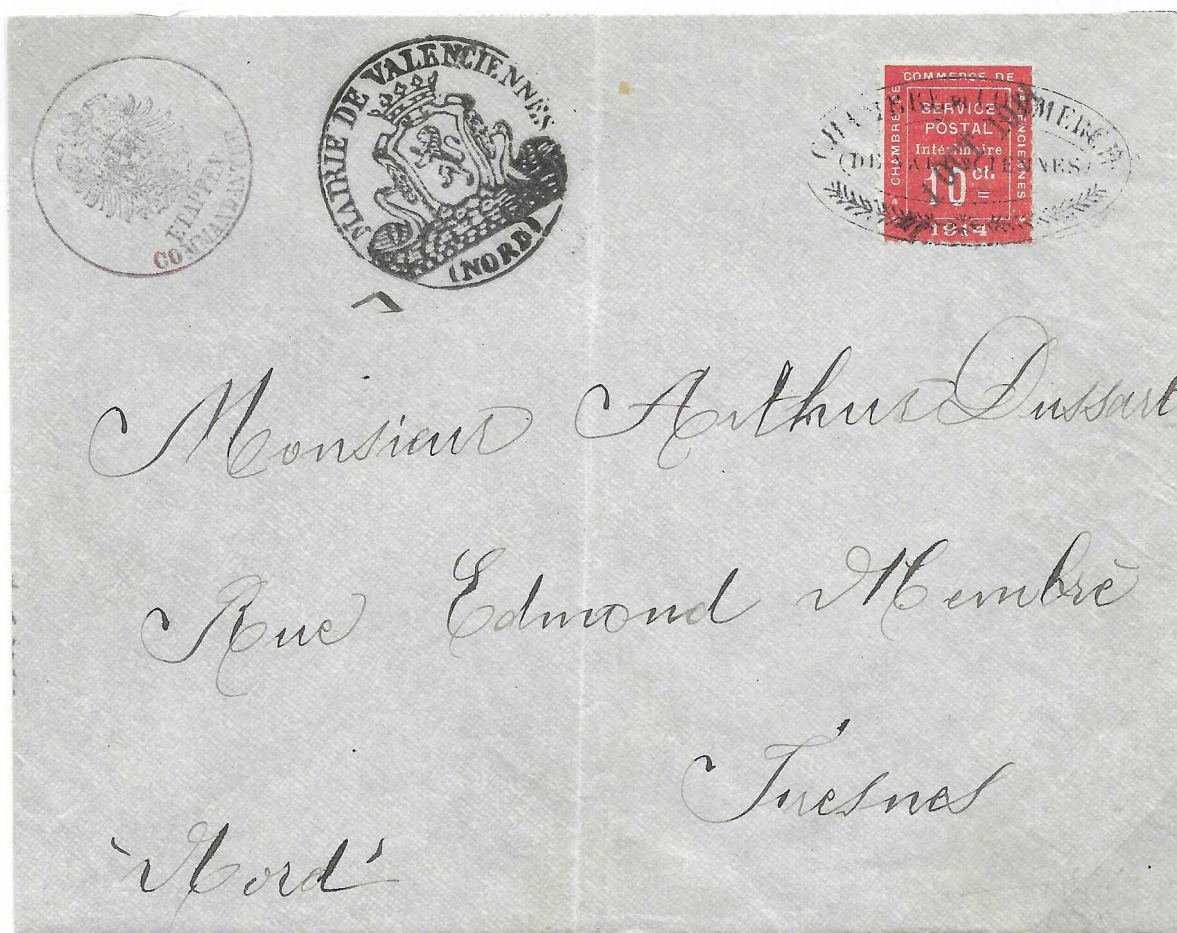 ETAPPEN
COMMANDAN
MAIRIE DE VALENCIENNES
(NORD)
CHAMBRE DE COMMERCE
(DE VALENCIENNES)
CHAMBRE COMMERCE DE VALENCIENNES
SERVICE
POSTAL
Intérimaire
10 ct.
1914
Monsieur Arthur Dussart
Rue Edmond Membré
Fresnes
"Nord"